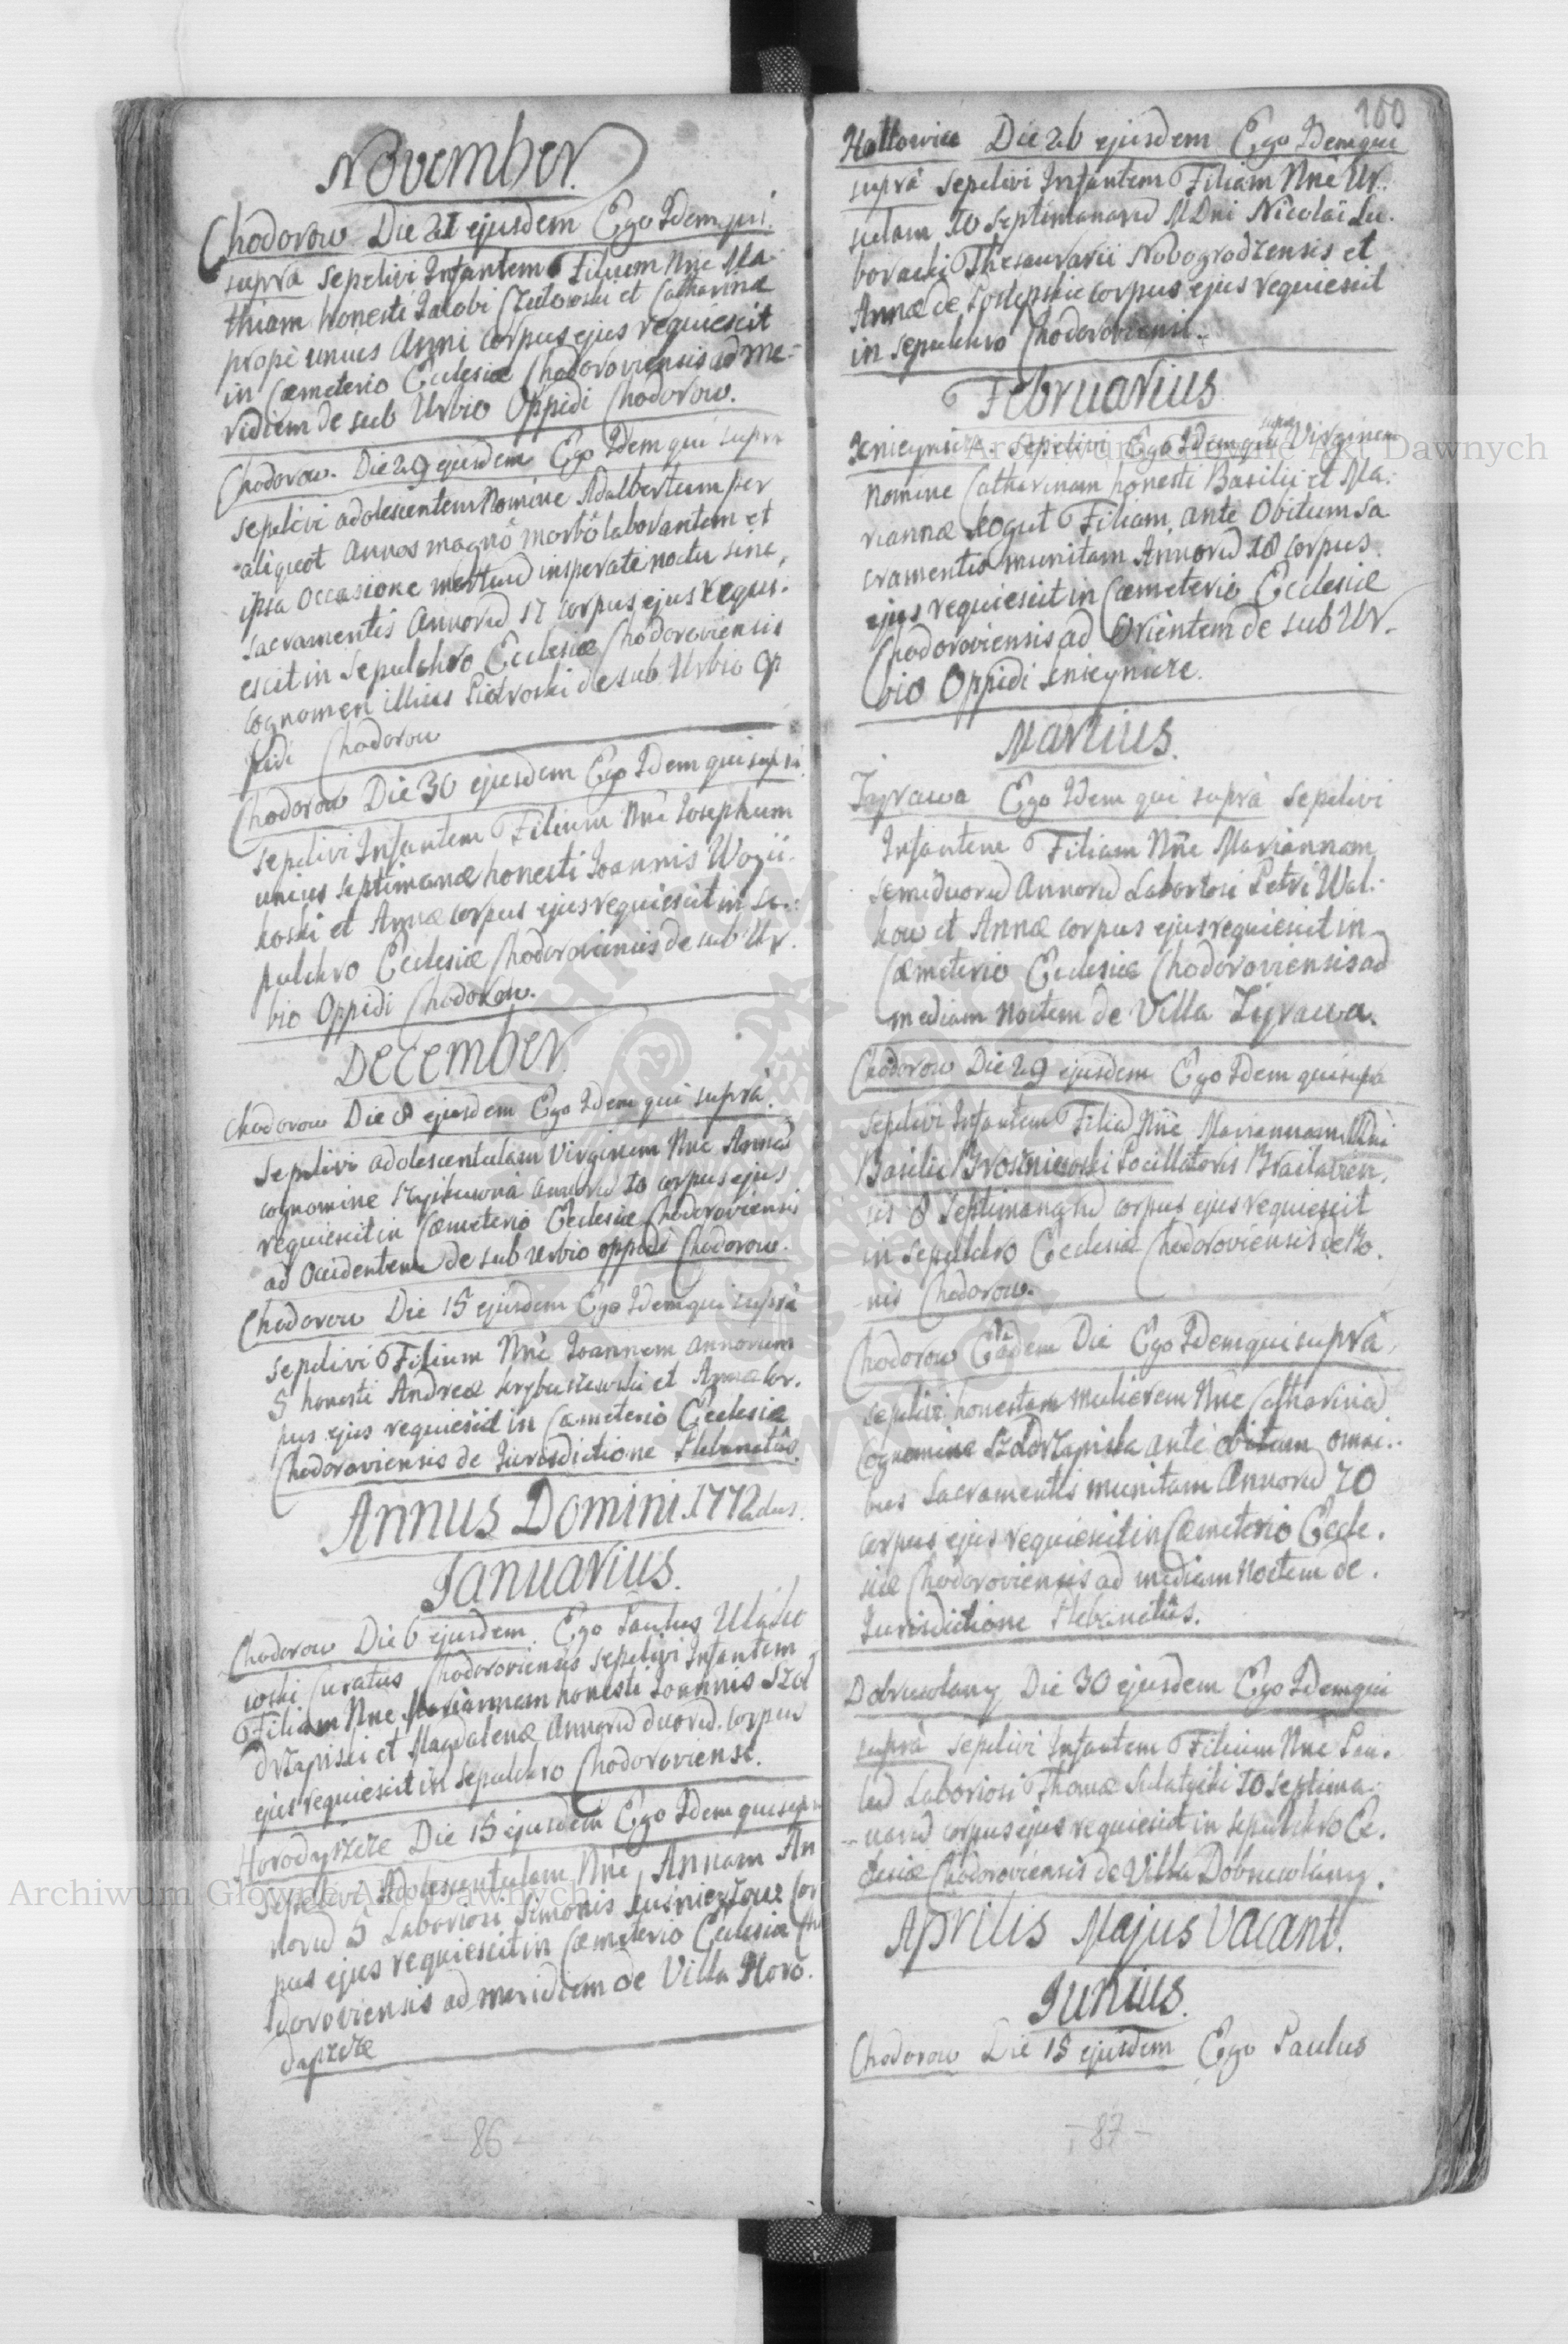 November.
Chodorow Die 21 ejusdem Ego Idem qui
supra sepelivi Infantem Filium Nne Ma-
thiam honesti Jacobi et Catharinæ
propè unius Anni corpus ejus requiescit
in Cæmeterio Ecclesiæ Chodoroviensis ad Me-
ridiem de sub Urbio Oppidi Chodorow.
Chodorow. Die 29 ejusdem Ego Idem qui supra
sepelivi adolescentem Nomine Adalbertum per
aliquot annos magnô morbô laborantem et
ipsa occasione insperate noctu sine
sacramentis annorũ 17 corpus ejus requi-
escit in Sepulchro Ecclesiæ Chodoroviensis
cognomen illius Piotroski de sub Urbio Op
pidi Chodorow
Chodorow Die 30 ejusdem Ego Idem qui supra
sepelivi Infantem Filium Nnè Josephum
unius septimanæ honesti Joannis Woyii-
koski et Annæ corpus ejus requiescit in Se-
pulchro Ecclesiæ Chodoroviensis de sub Ur-
bio Oppidi Chodorow.
December.
Chodorow Die 8 ejusdem Ego Idem qui suprà.
Sepelivi adolescentulam Virginem Nne Annã
cognomine annorũ 10 corpus ejus
requiescit in Cæmeterio Ecclesiæ Chodoroviensis
ad Occidentem de sub Urbio oppidi Chodorow.
Chodorow Die 15 ejusdem Ego Idem qui suprà
sepelivi Filium Nnè Joannem annorum
5 honesti Andreæ et Annæ Cor-
pus ejus requiescit in Cæmeterio Ecclesiæ
Chodoroviensis de Jurisdictione Plebanatûs.
Annus Domini 1772dus.
Januarius.
Chodorow Die 6 ejusdem. Ego Paulus Ulasko
wski Curatus Chodoroviensis sepelivi Infantem
Filiam Nne Mariannam honesti Joannis Szol
drzapiski et Magdalenæ Annorũ duorũ. corpus
ejus requiescit in Sepulchro Chodoroviense.
Horodyszcze Die 15 ejusdem Ego Idem qui supra
sepelivi Adolescentulam Nnè Annam An
norũ 5 Laboriosi Simonis Cor
pus ejus requiescit in Cæmeterio Ecclesiæ Cho
doroviensis ad meridiem de Villa Horo-
dyszcze
- 86 -
100
Hallowice Die 26 ejusdem Ego Idem qui
suprà sepelivi Infantem Filiam Nnè Ur-
sulam 10 Septimanarũ MDni Nicolai Lu-
boracki Thesaurarii Nobogrodzensis et
Annæ de corpus ejus requiescit
in sepulchro Chodoroviensi.
Februarius
sepelivi Ego Idem qui supra Virginem
Nomine Catharinam honesti Basilii et Ma-
riannæ Kogut Filiam, ante Obitum Sa
cramentis munitam Annorũ 18 corpus
ejus requiescit in Cæmeterio Ecclesiæ
Chodoroviensis ad Orientem de sub Ur-
bio Oppidi
Martius.
Zyrawa Ego Idem qui suprà sepelivi
Infantem Filiam Nñe Mariannam
semiduorũ Annorũ Laboriosi Petri Wal-
kow et Annæ corpus ejus requiescit in
Cæmeterio Ecclesiæ Chodoroviensis ad
mediam Noctem de Villa Zyrawa.
Chodorow Die 29 ejusdem Ego Idem qui supra
sepelivi Infantem Filiã Nñè Mariannam MDni
Basilii Brosniewski Pocillatoris Braclavien-
sis 8 Septimanarũ corpus ejus requiescit
in sepulchro Ecclesiæ Chodoroviensis de Bo-
nis Chodorow.
Chodorow Eadem Die Ego Idem qui suprà
sepelivi honestam mulierem Nñe Catharinã
Cognomine Szoldrzapiska ante obitum omni-
bus Sacramentis munitam Annorũ 70
corpus ejus requiescit in Cæmeterio Eccle-
siæ Chodoroviensis ad mediam Noctem de
Jurisdictione Plebanatûs.
Dobrowlany Die 30 ejusdem Ego Idem qui
suprà sepelivi Infantem Filium Nne Pau-
lũ Laboriosi Thomæ 10 septima-
narũ corpus ejus requiescit in sepulchro Ec-
clesiæ Chodoroviensis de Villa Dobrowlany.
Aprilis Majus Vacant.
Junius.
Chodorow Die 15 ejusdem Ego Paulus
- 87 -
Archiwum Główne Akt Dawnych
Archiwum Główne Akt Dawnych